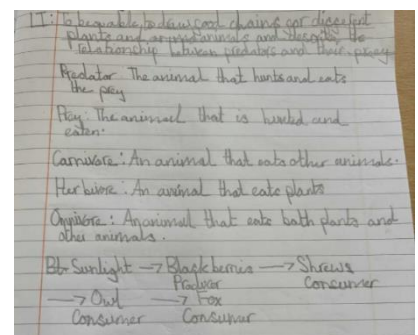 LI: To be able to draw food chains for different
plants and animals and describe the
relationship between predators and their prey
Predator: The animal that hunts and eats
the prey
Prey: The animal that is hunted and
eaten.
Carnivore: An animal that eats other animals.
Herbivore: An animal that eats plants
Omnivore: An animal that eats both plants and
other animals.
Sunlight → Blackberries → Shrews
Producer Consumer
→ Owl → Fox
Consumer Consumer